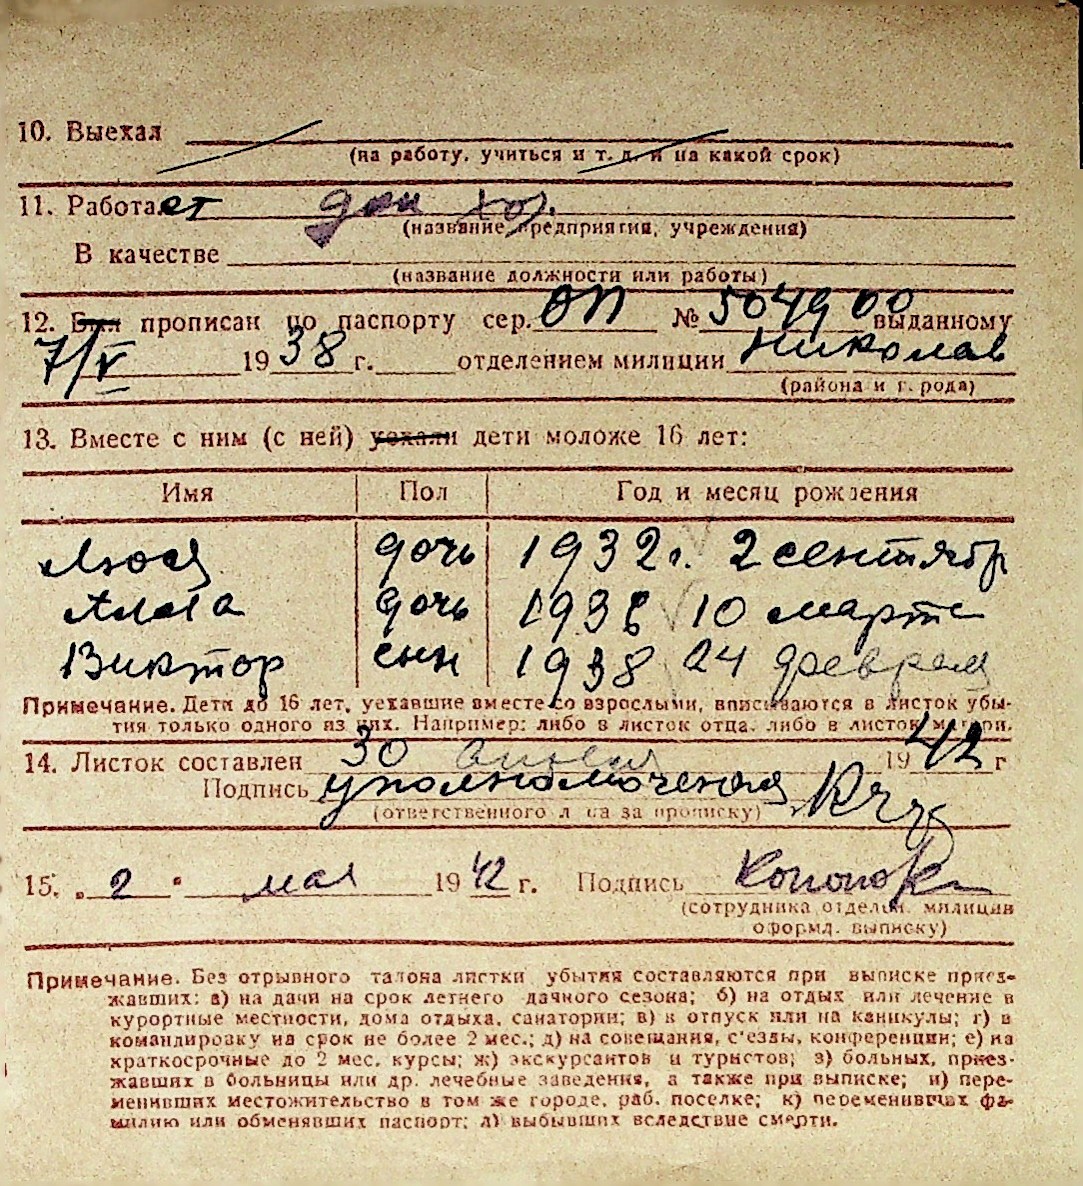 10. Выехал
(на работу, учиться и т. д. и на какой срок)
11. Работает дом хоз.
(название предприятия, учреждения)
В качестве
(название должности или работы)
12. Был прописан по паспорту сер. ОП № 504900 выданному
7/V 1938 г. отделением милиции Николаев
(района и города)
13. Вместе с ним (с ней) уехали дети моложе 16 лет:
Имя Пол Год и месяц рождения
Люся дочь 1932 г. 2 сентябр
Алла дочь 1936 10 марта
Виктор сын 1938 24 февраля
Примечание. Дети до 16 лет, уехавшие вместе со взрослыми, вписываются в листок убы-
тия только одного из них. Например: либо в листок отца, либо в листок матери.
14. Листок составлен 30 апреля 1942 г
Подпись уполномоченая
(ответственного лица за прописку)
15. „2" мая 1942 г. Подпись
(сотрудника отделен. милиции
оформл. выписку)
Примечание. Без отрывного талона листки убытия составляются при выписке приез-
жавших: а) на дачи на срок летнего дачного сезона; б) на отдых или лечение в
курортные местности, дома отдыха, санатории; в) в отпуск или на каникулы; г) в
командировку на срок не более 2 мес.; д) на совещания, с'езды, конференции; е) на
краткосрочные до 2 мес. курсы; ж) экскурсантов и туристов; з) больных, приез-
жавших в больницы или др. лечебные заведения, а также при выписке; и) пере-
менивших местожительство в том же городе, раб. поселке; к) переменивших фа-
милию или обменявших паспорт; л) выбывших вследствие смерти.